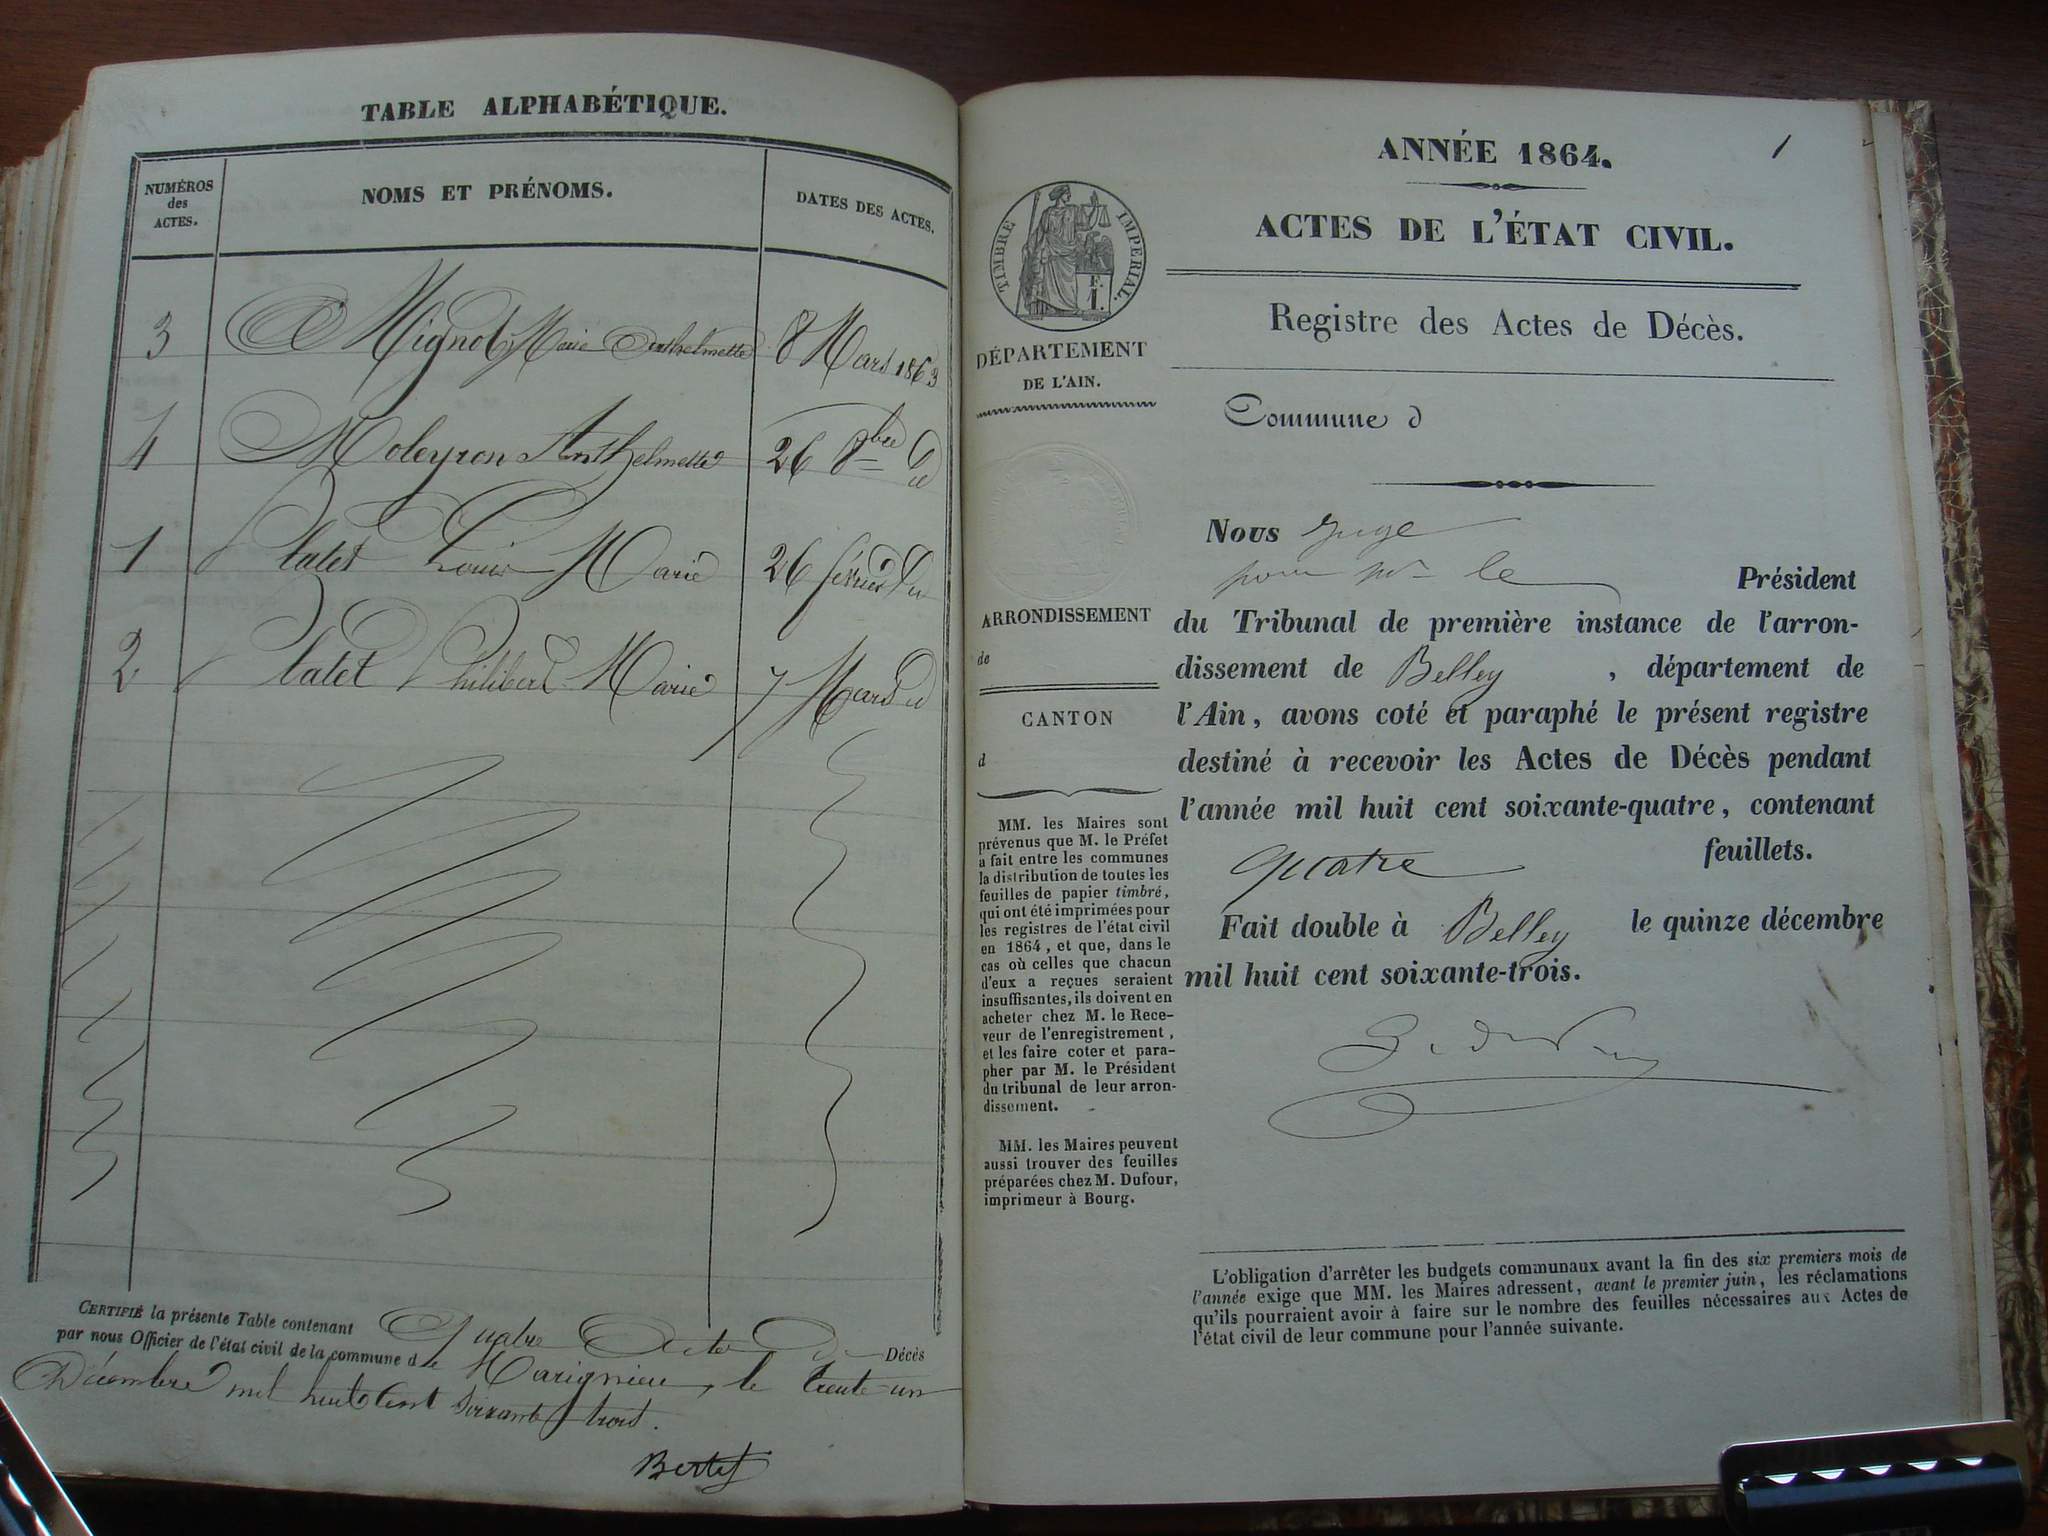 TABLE ALPHABÉTIQUE.
NUMÉROS
des
ACTES.
NOMS ET PRÉNOMS.
DATES DES ACTES.
3 Mignot Marie Anthelmette 8 Mars 1863
4 Moleyron Anthelmette 26 8bre du
1 Palet Louis Marie 26 février du
2 Palet Philibert Marie 7 Mars du
CERTIFIÉ la présente Table contenant quatre Actes de Décès
par nous Officier de l'état civil de la commune de Marignieu, le trente un
Décembre mil huit Cent soixante trois.
Bertet
1
ANNÉE 1864.
ACTES DE L'ÉTAT CIVIL.
Registre des Actes de Décès.
TIMBRE IMPÉRIAL.
F.
1.
DÉPARTEMENT
DE L'AIN.
ARRONDISSEMENT
de
CANTON
d
MM. les Maires sont
prévenus que M. le Préfet
a fait entre les communes
la distribution de toutes les
feuilles de papier timbré,
qui ont été imprimées pour
les registres de l'état civil
en 1864, et que, dans le
cas où celles que chacun
d'eux a reçues seraient
insuffisantes, ils doivent en
acheter chez M. le Rece-
veur de l'enregistrement,
et les faire coter et para-
pher par M. le Président
du tribunal de leur arron-
dissement.
MM. les Maires peuvent
aussi trouver des feuilles
préparées chez M. Dufour,
imprimeur à Bourg.
Commune d
Nous juge
pour Mr le Président
du Tribunal de première instance de l'arron-
dissement de Belley, département de
l'Ain, avons coté et paraphé le présent registre
destiné à recevoir les Actes de Décès pendant
l'année mil huit cent soixante-quatre, contenant
quatre feuillets.
Fait double à Belley le quinze décembre
mil huit cent soixante-trois.
L'obligation d'arrêter les budgets communaux avant la fin des six premiers mois de
l'année exige que MM. les Maires adressent, avant le premier juin, les réclamations
qu'ils pourraient avoir à faire sur le nombre des feuilles nécessaires aux Actes de
l'état civil de leur commune pour l'année suivante.